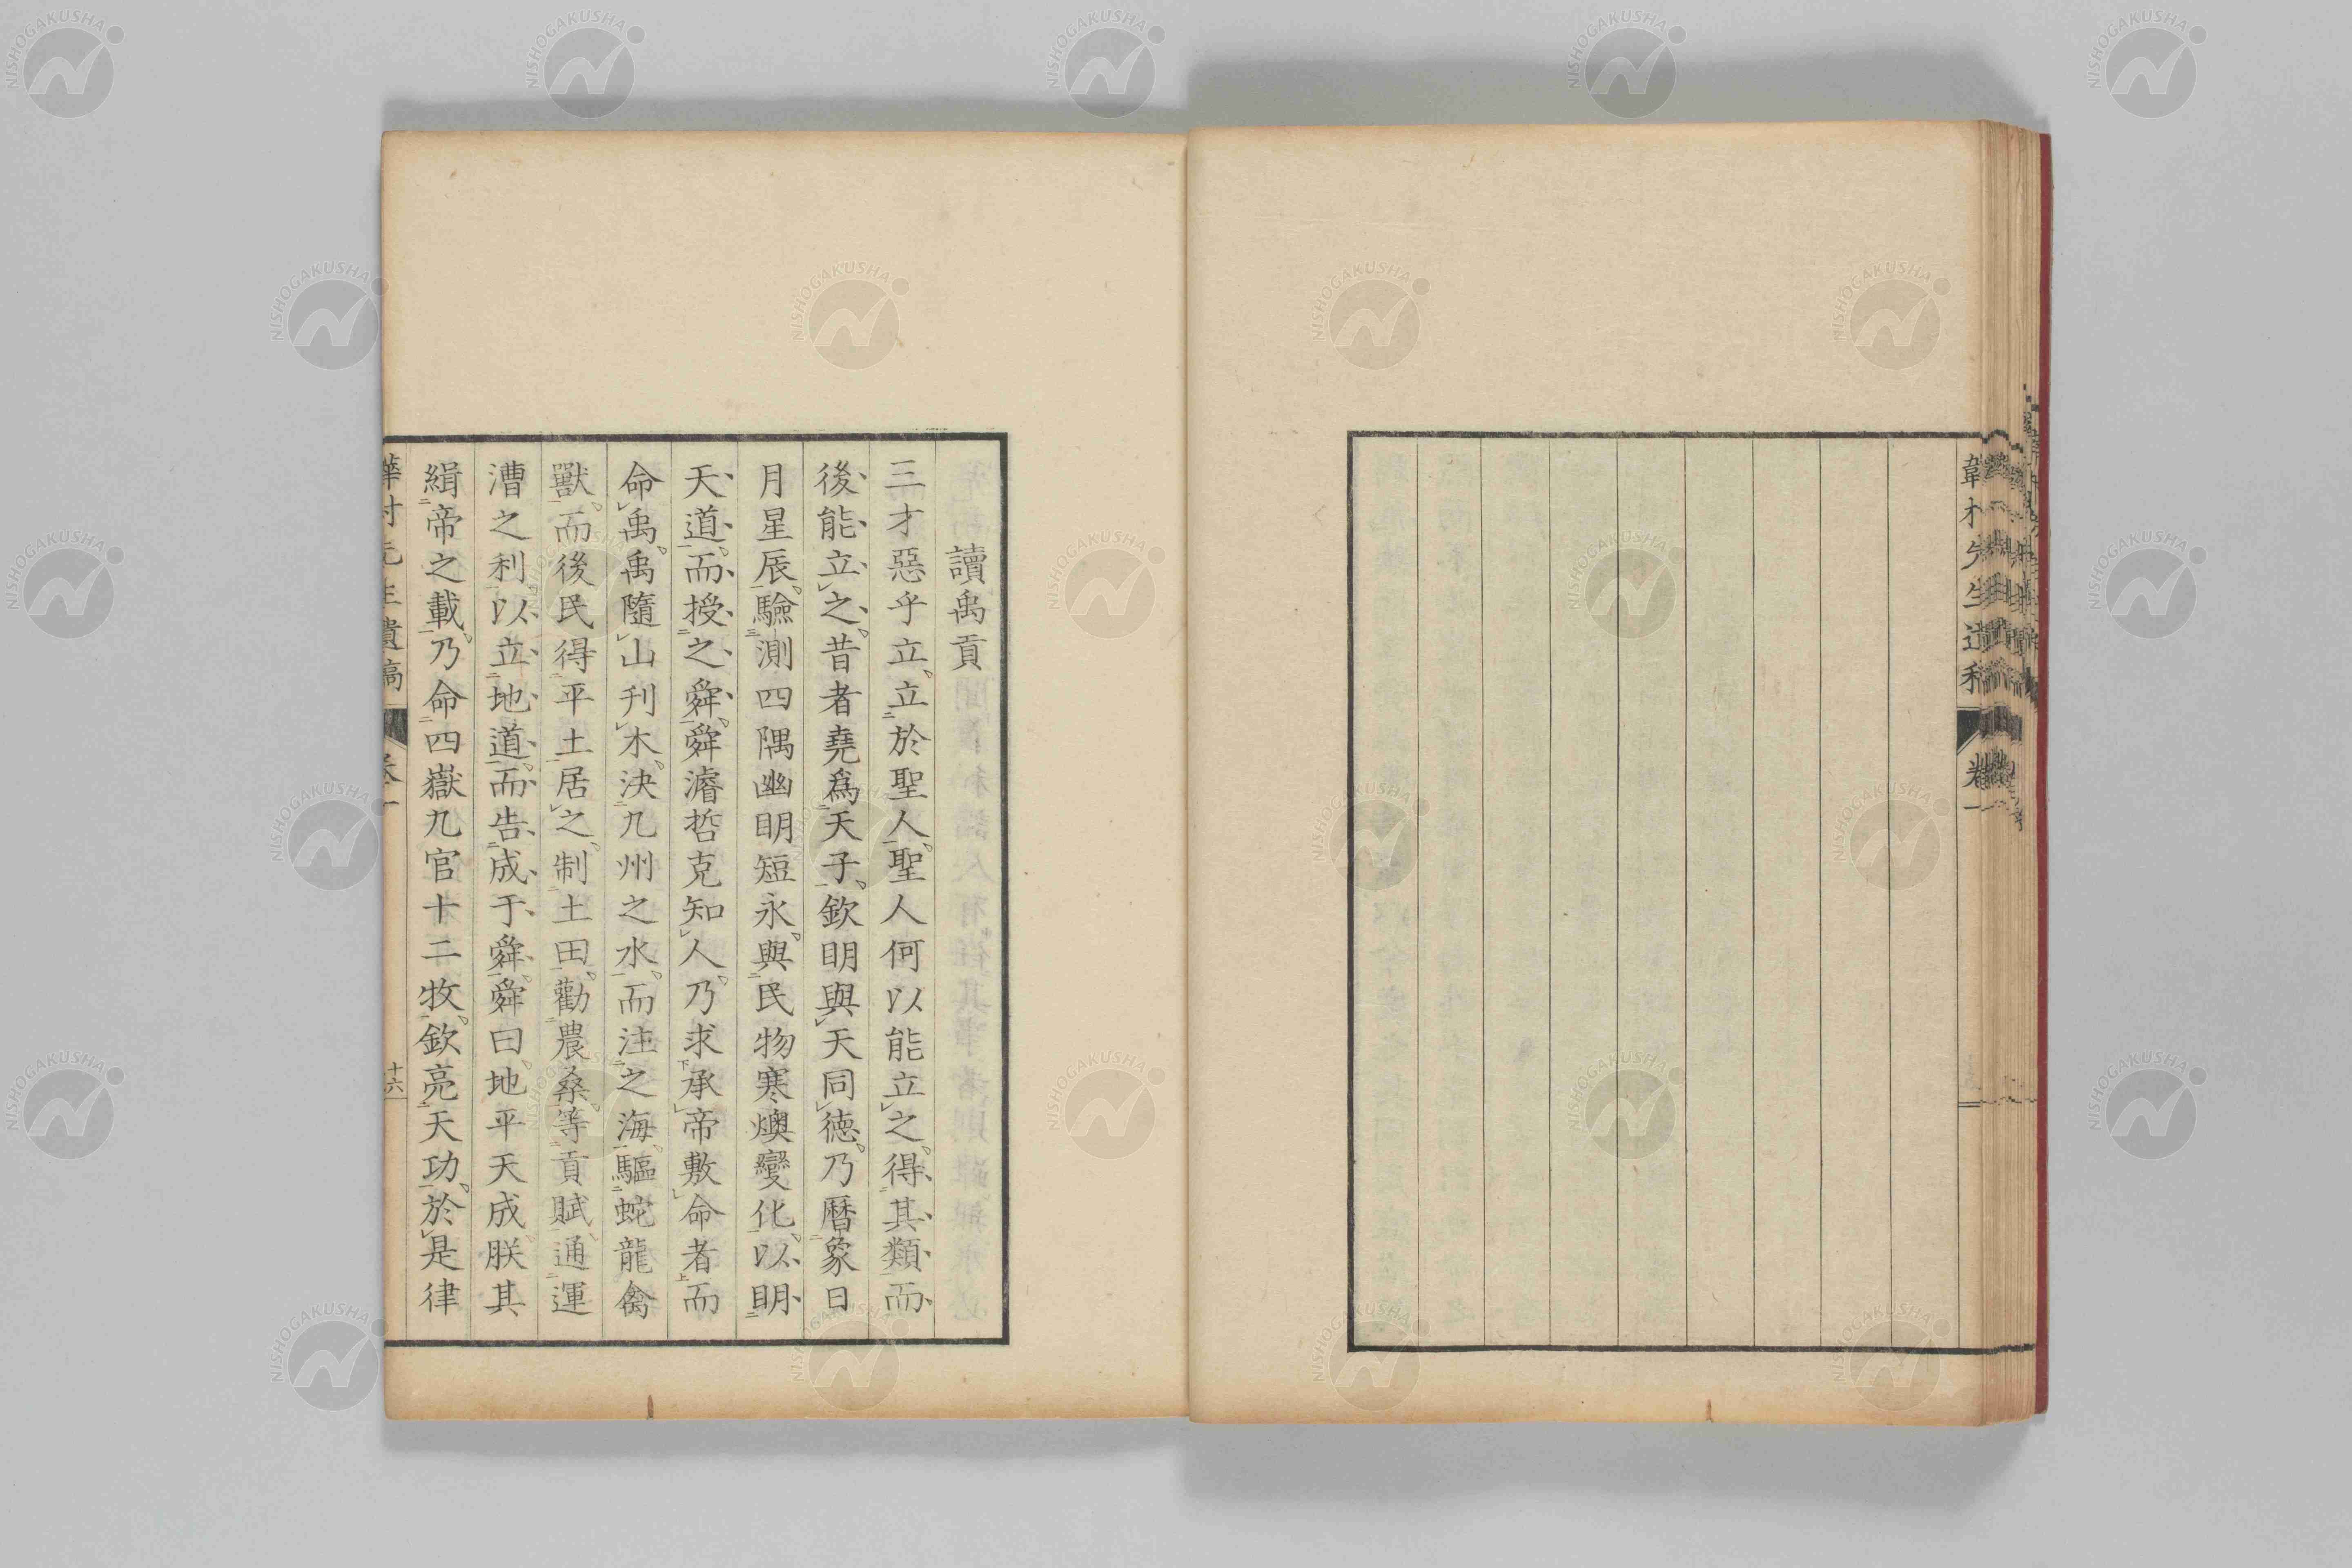 讀禹貢
三才惡乎立立於聖人聖人何以能立之得其類而
後能立之昔者堯爲天子欽明與天同德乃曆象日
月星辰驗測四隅幽明短永與民物寒燠變化以明
天道而授之舜舜濬哲克知人乃求承帝敷命者而
命禹禹隨山刊木決九州之水而注之海驅蛇龍禽
獸而後民得平土居之制土田勸農桑等貢賦通運
漕之利以立地道而告成于舜舜曰地平天成朕其
緝帝之載乃命四嶽九官十二牧欽亮天功於是律
先生遺稿
卷一
十六
卷一
NISHOGAKUSHA